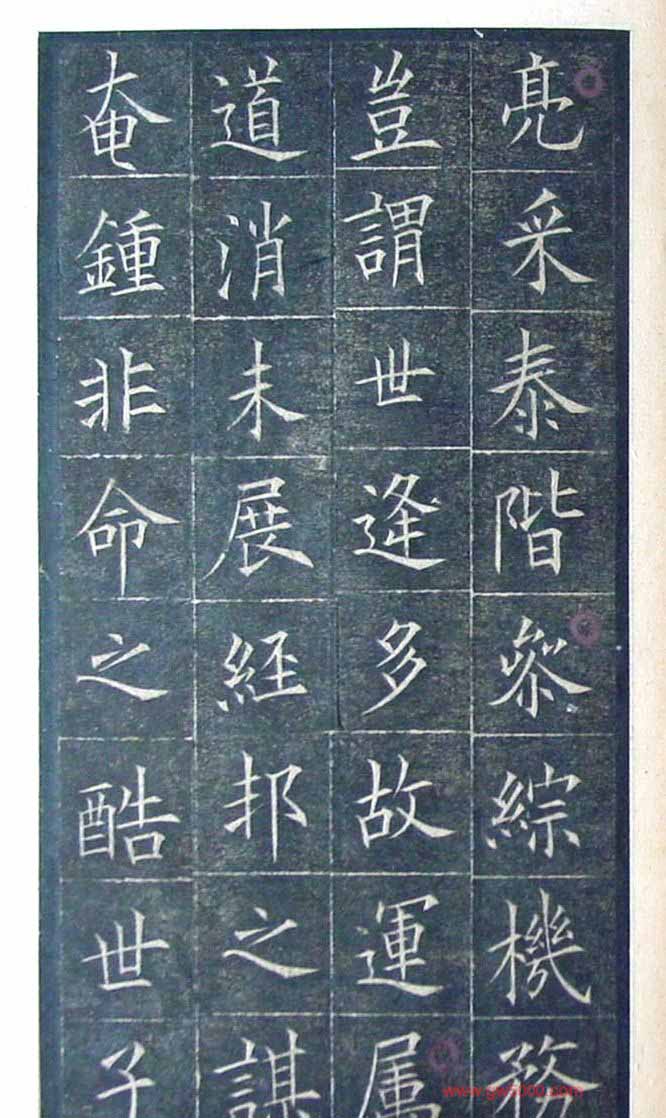 亮采泰階叅綜機務
豈謂世逢多故運属
道消未展經邦之謀
奄鍾非命之酷世子
www.gw5000.com